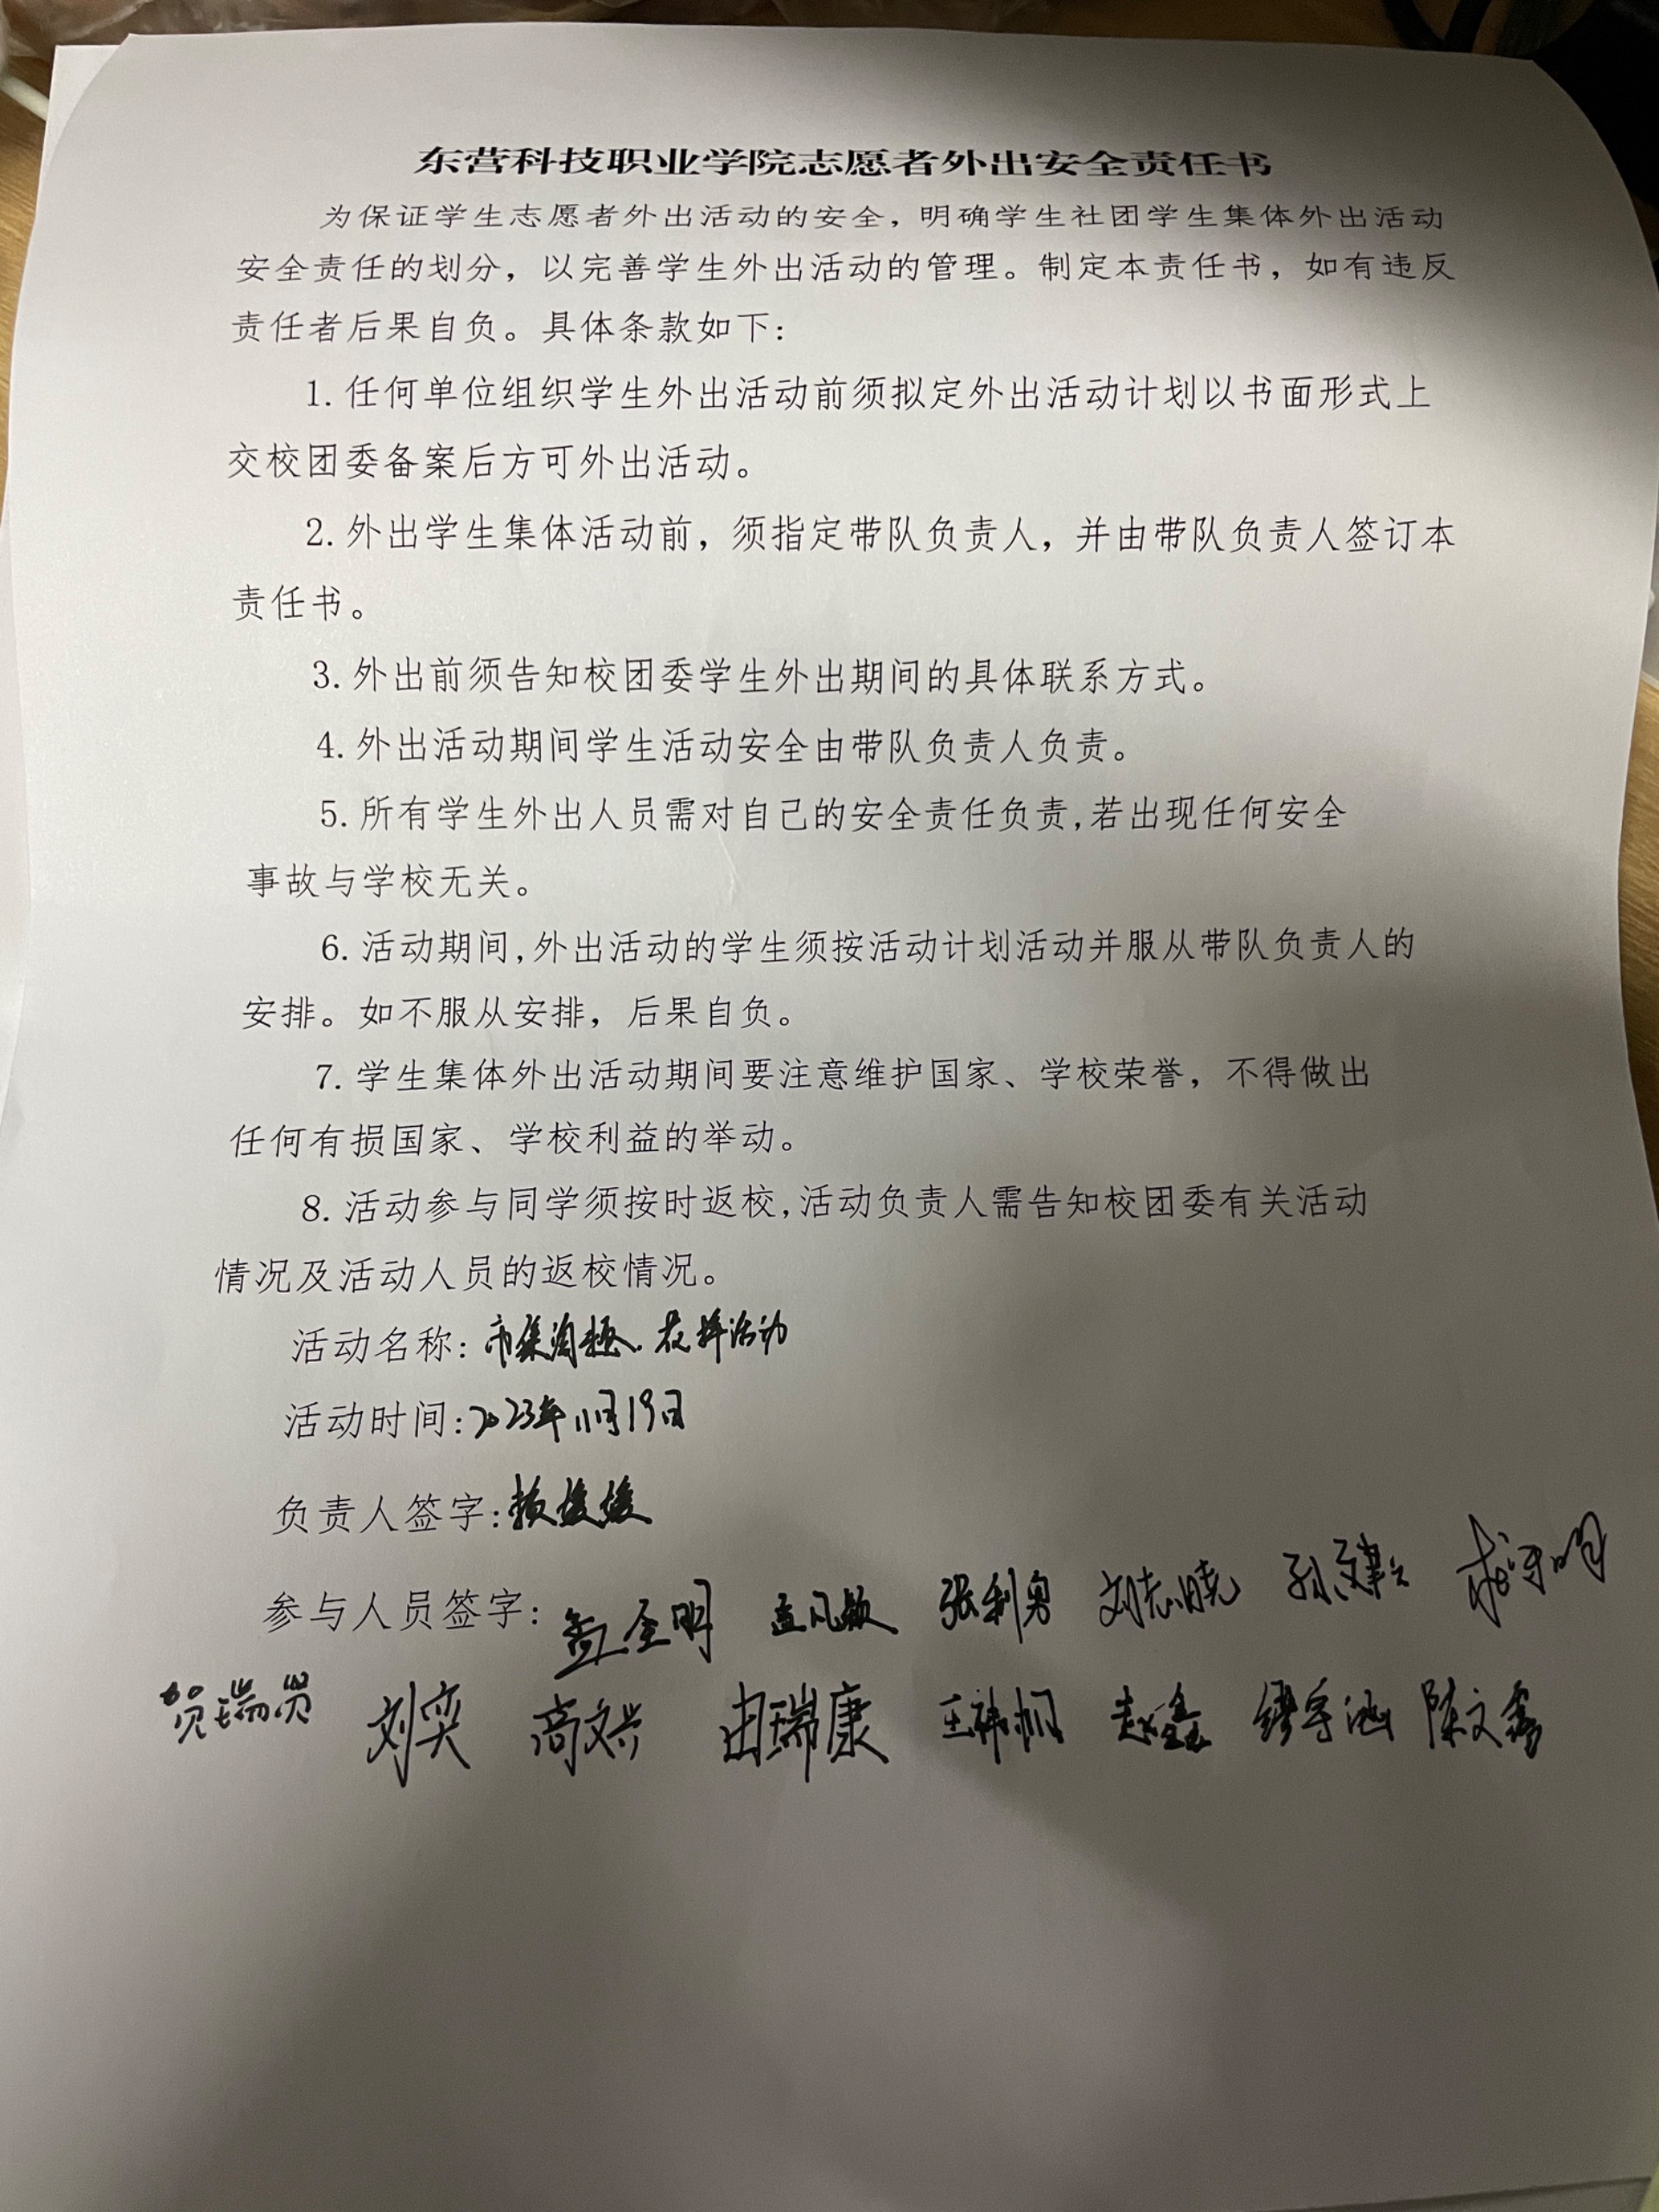 东营科技职业学院志愿者外出安全责任书
为保证学生志愿者外出活动的安全，明确学生社团学生集体外出活动
安全责任的划分，以完善学生外出活动的管理。制定本责任书，如有违反
责任者后果自负。具体条款如下：
1.任何单位组织学生外出活动前须拟定外出活动计划以书面形式上
交校团委备案后方可外出活动。
2.外出学生集体活动前，须指定带队负责人，并由带队负责人签订本
责任书。
3.外出前须告知校团委学生外出期间的具体联系方式。
4.外出活动期间学生活动安全由带队负责人负责。
5.所有学生外出人员需对自己的安全责任负责,若出现任何安全
事故与学校无关。
6.活动期间,外出活动的学生须按活动计划活动并服从带队负责人的
安排。如不服从安排，后果自负。
7.学生集体外出活动期间要注意维护国家、学校荣誉，不得做出
任何有损国家、学校利益的举动。
8.活动参与同学须按时返校,活动负责人需告知校团委有关活动
情况及活动人员的返校情况。
活动名称：市集淘趣.花样活动
活动时间:2023年11月19日
负责人签字:
参与人员签字: 孟圣明 孟凡敏 张利勇 刘志晓
刘奕 高文兴 由瑞康 赵鑫 缪宇涵 陈文鑫